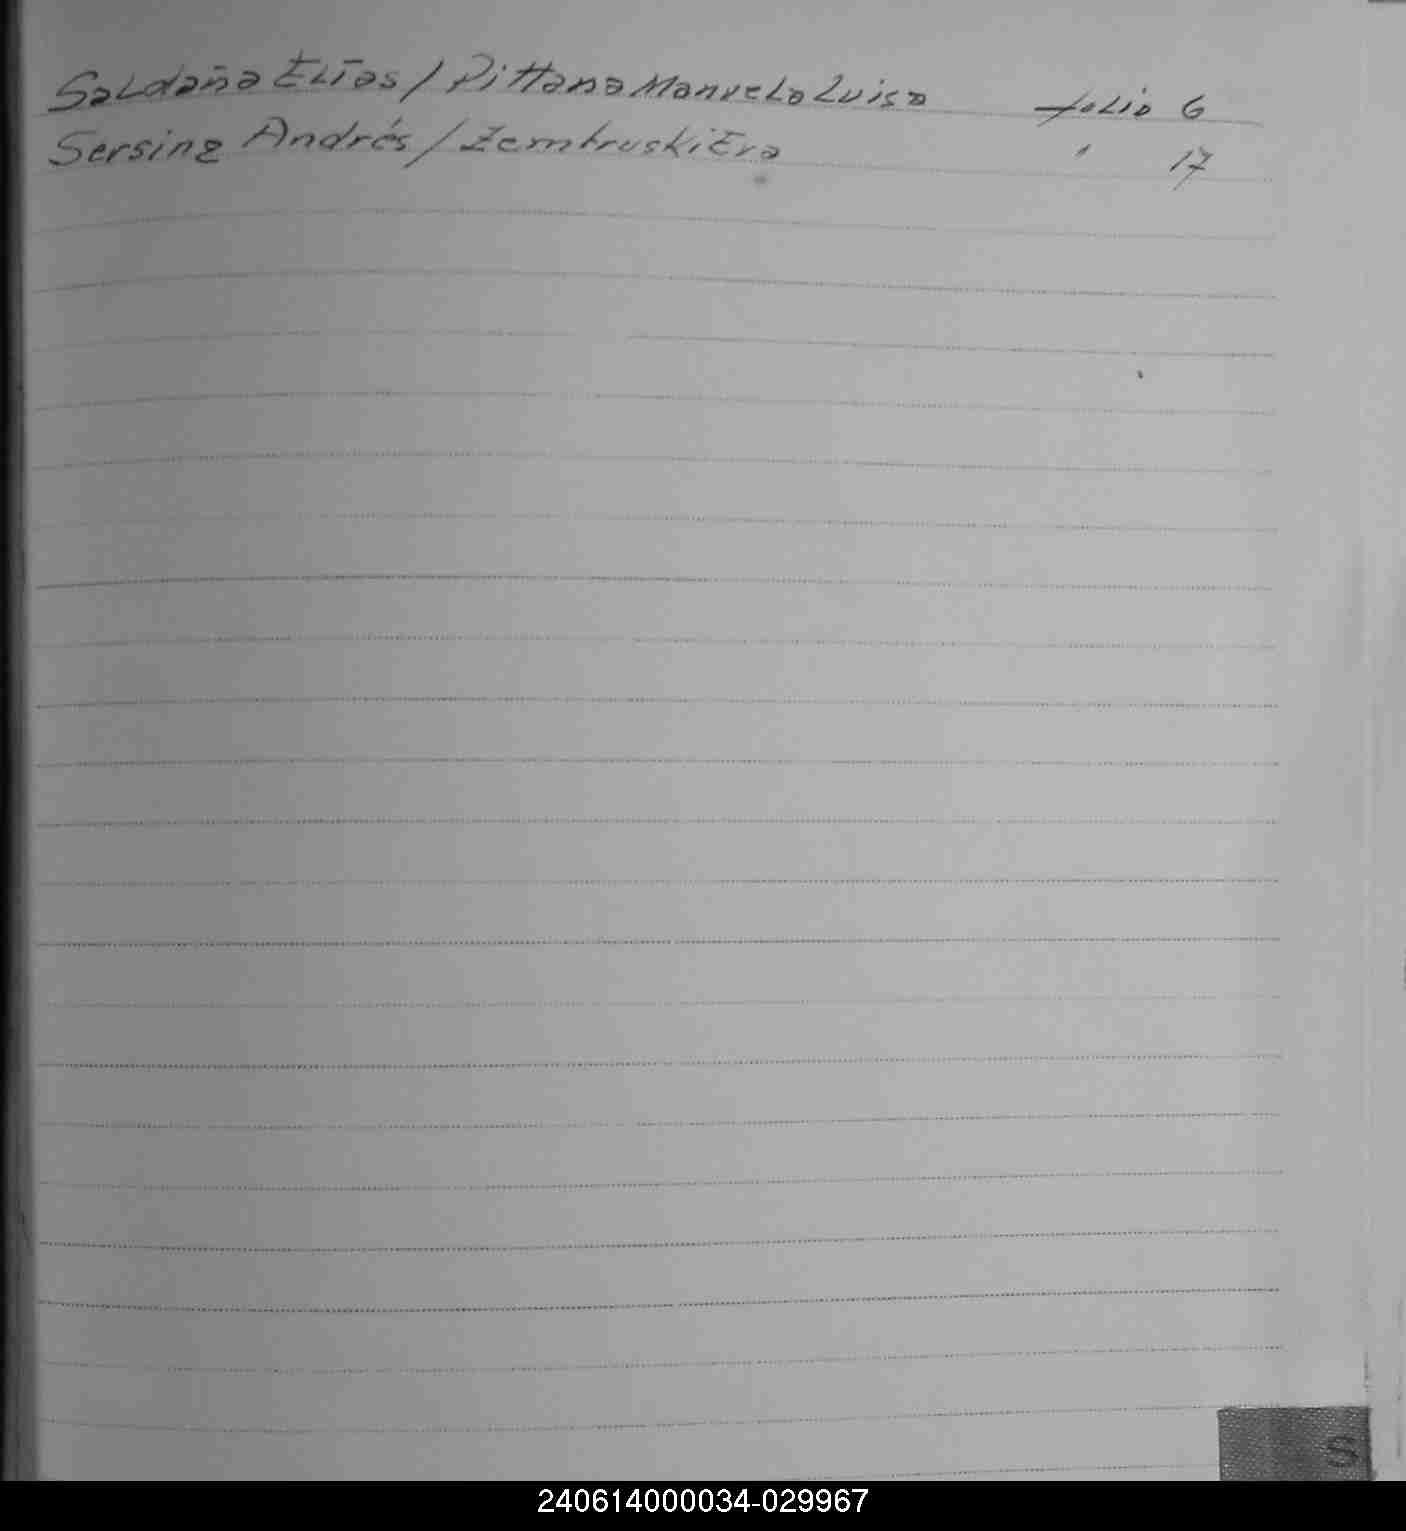 Saldaña Elías / Pittana Manuela Luisa folio 6
Sersing Andrés / Zembruski Eva " 17
S
240614000034-029967